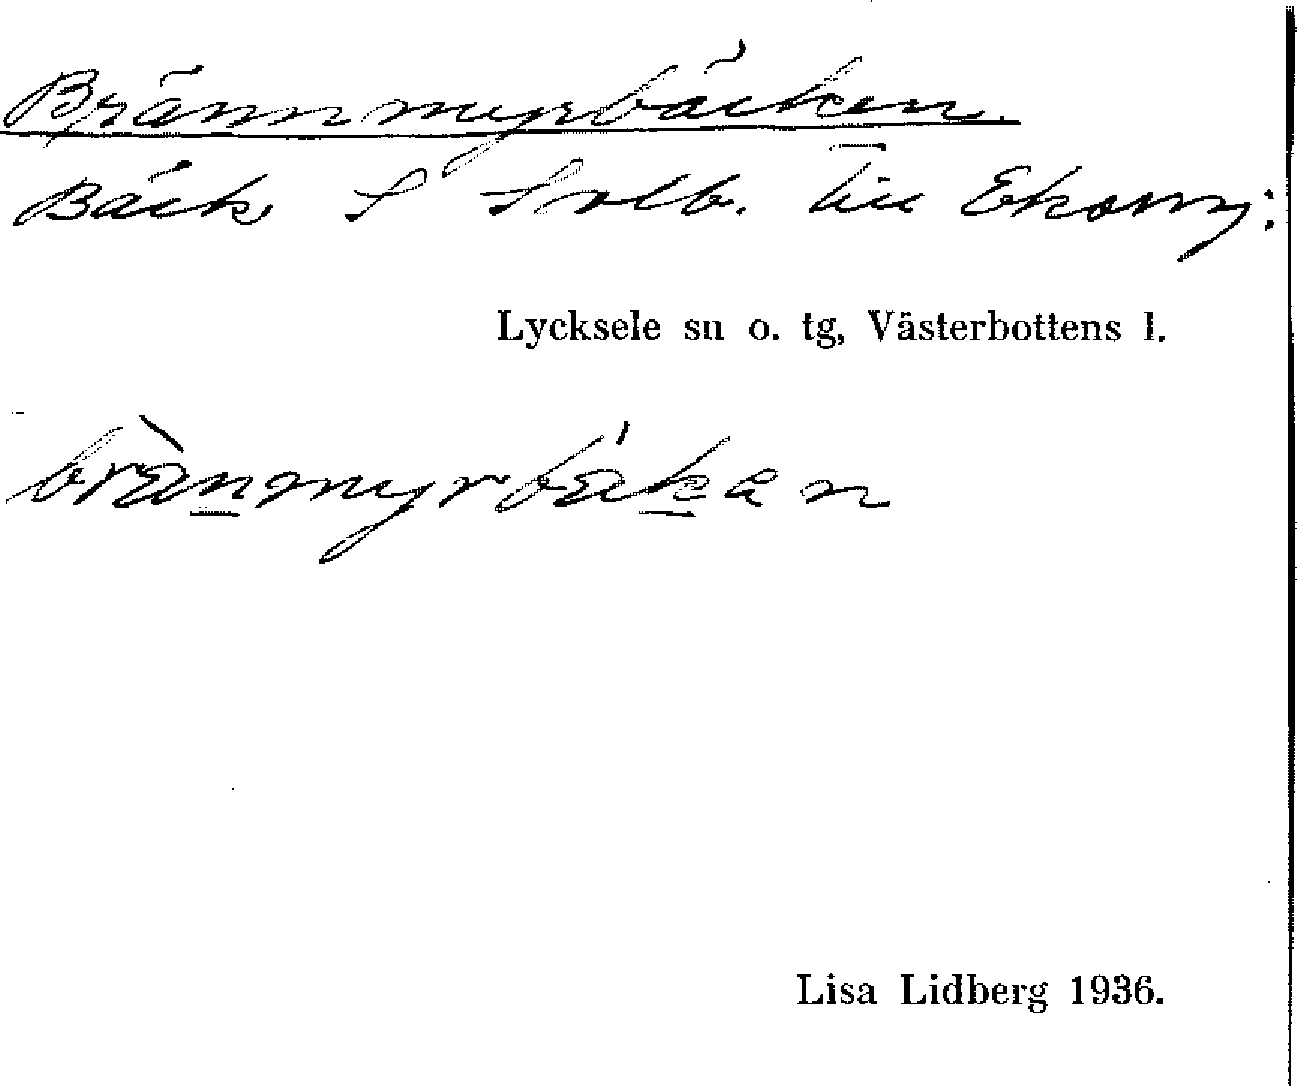 Brännmyrbäcken.
Bäck S Solb. till Ekorrs:
Lycksele sn o. tg, Västerbottens l.
brànmyrbäkan
Lisa Lidberg 1936.